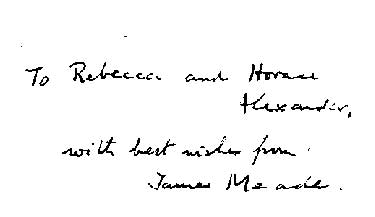 To Rebecca and Horace
Alexander,
with best wishes from
James Meade.